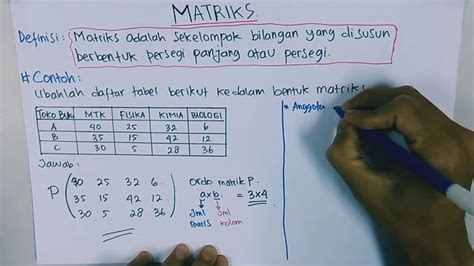 MATRIKS.
Definisi : Matriks adalah sekelompok bilangan yang disusun
berbentuk persegi panjang atau persegi.
# Contoh:
Ubahlah daftar tabel berikut kedalam bentuk matriks
Toko Buku MTK FISIKA KIMIA BIOLOGI
A 40 25 32 6
B 35 15 42 12
C 30 5 28 36
Jawab:
P ( 40 25 32 6
35 15 42 12
30 5 28 36 )
Ordo matrik P.
a x b = 3x4
Jml Jml
Baris kolom
* Anggota